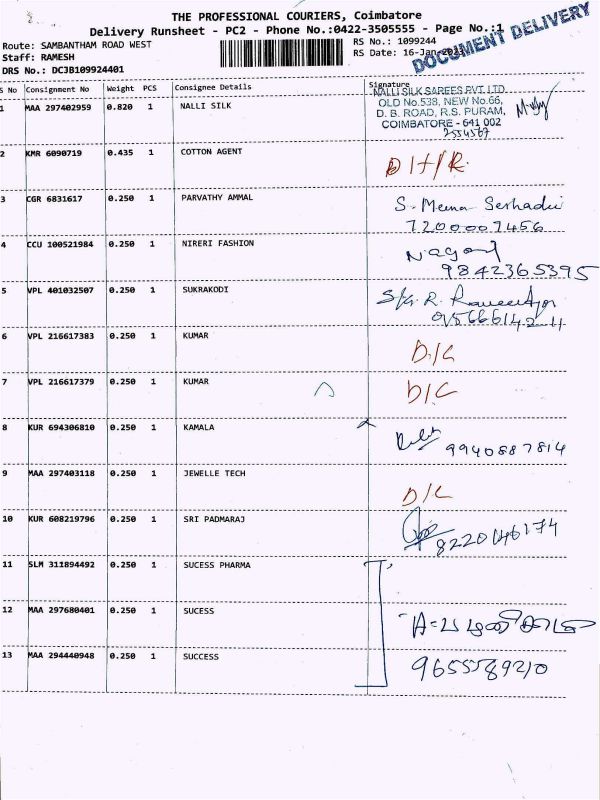 THE PROFESSIONAL COURIERS, Coimbatore
Delivery Runsheet - PC2 - Phone No.:0422-3505555 - Page No.:1
DOCUMENT DELIVERY
Route: SAMBANTHAM ROAD WEST RS No.: 1099244
Staff: RAMESH RS Date: 16-Jan-2023
DRS No.: DCJB109924401
S No Consignment No Weight PCS Consignee Details Signature
1 MAA 297402959 0.820 1 NALLI SILK
NALLI SILK SAREES PVT. LTD
OLD No.538, NEW No.66,
D. B. ROAD, R.S. PURAM,
COIMBATORE - 641 002
2554567
2 KMR 6090719 0.435 1 COTTON AGENT
3 CGR 6831617 0.250 1 PARVATHY AMMAL S. Meena
7200007456
4 CCU 100521984 0.250 1 NIRERI FASHION
9842365395
5 VPL 401032507 0.250 1 SUKRAKODI
6 VPL 216617383 0.250 1 KUMAR D/C
7 VPL 216617379 0.250 1 KUMAR D/C
8 KUR 694306810 0.250 1 KAMALA 9940887814
9 MAA 297403118 0.250 1 JEWELLE TECH D/C
10 KUR 608219796 0.250 1 SRI PADMARAJ 8220146174
11 SLM 311894492 0.250 1 SUCESS PHARMA
12 MAA 297680401 0.250 1 SUCESS
13 MAA 294440948 0.250 1 SUCCESS 9655589210